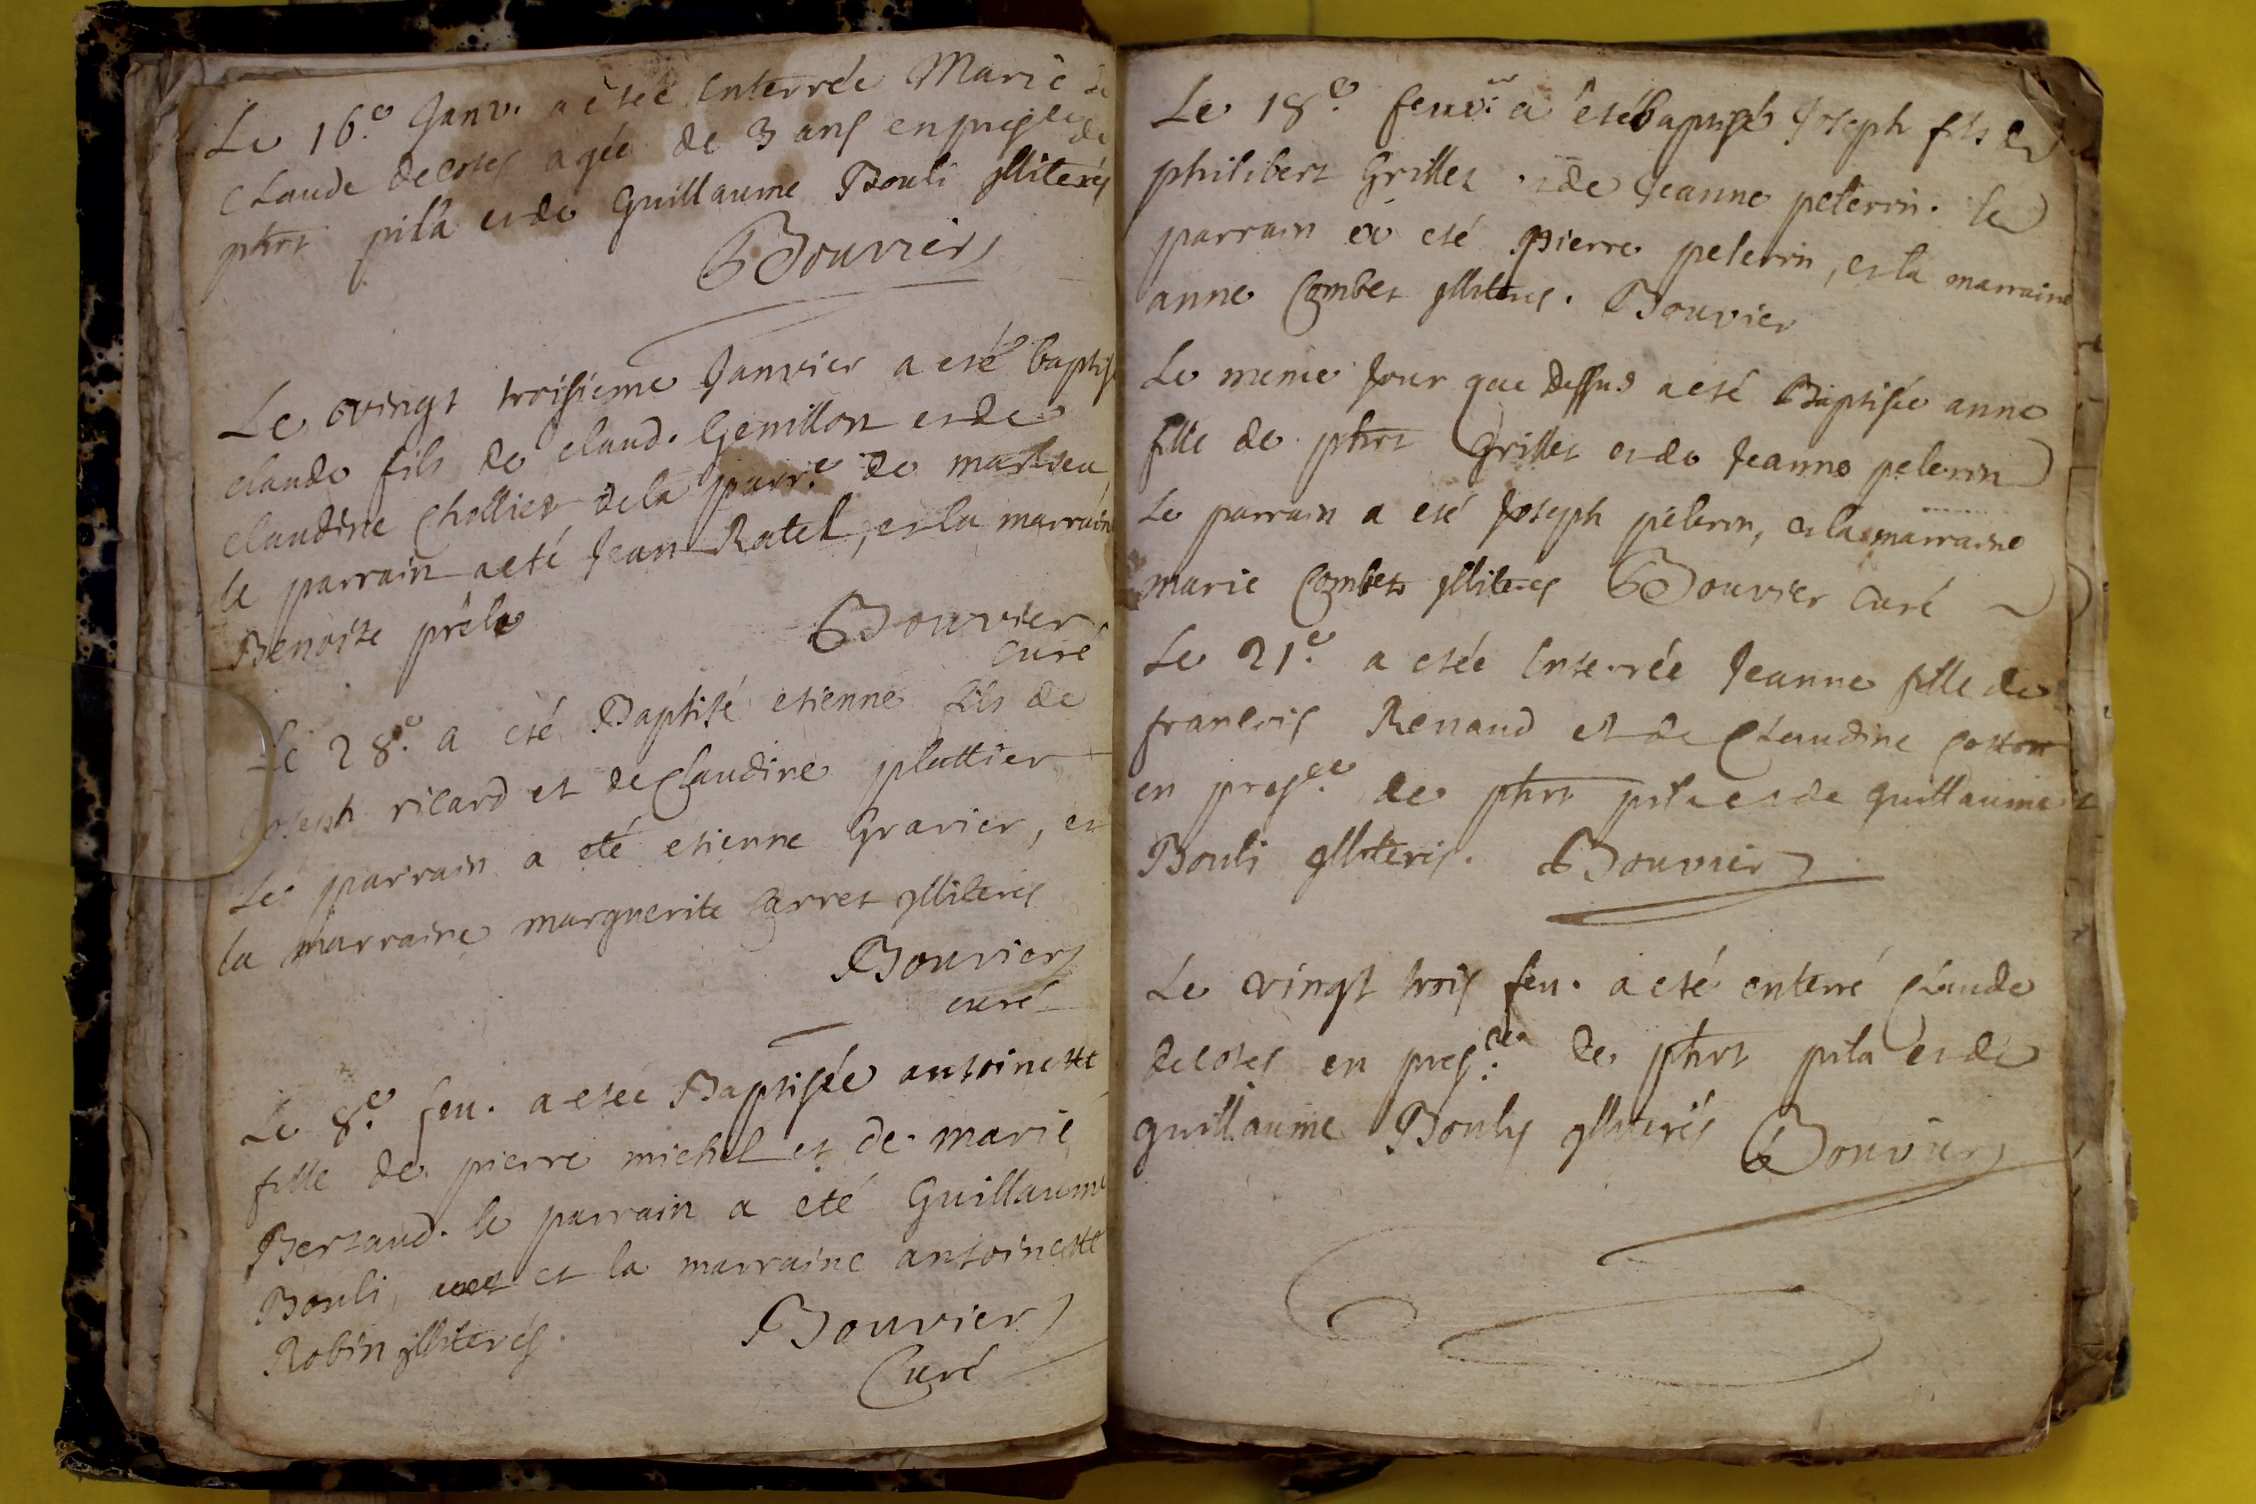 Le 16.e Janv. a etée enterrée Marie de
Claude decotes agée de 3 ans en presce de
phrt pila et de Guillaume Bouli illiterés
Bouvier
Le vingt troisieme Janvier a eté baptisé
claude fils de claud. Genillon et de
claudine Chollier de la parr.e de
le parrain a eté Jean Ratel, et la marraine
Benoite
Bouvier
curé
Le 28.e a eté Baptisé etienne fils de
Joseph ricard et de Claudine plattier
Le parrain a eté etienne Gravier, et
la marraine marguerite Carret illiterés
Bouvier
curé
Le 8.e feu. a etée Baptisée antoinette
fille de pierre michel et de marie
Bertaud. le parrain a eté Guillaume
Bouli, et la marraine antoinette
Robin illiterés.
Bouvier
Curé
Le 18.e feuv. a eté baptisé Joseph fils de
philibert Grillet et de Jeanne pelerin. le
parrain a eté pierre pelerin, et la marraine
anne Combet illiterés. Bouvier
Le meme Jour que dessus a eté Baptisée anne
fille de phrt Grillet et de Jeanne pelerin
Le parrain a eté Joseph pelerin, et la marraine
marie Combet illiterés Bouvier curé
Le 21.e a etée enterrée Jeanne fille de
francois Renaud et de Claudine Cotton
en presce de phrt pila et de guillaume
Bouli illiterés. Bouvier
Le vingt trois feu. a eté enterré Claude
decotes en presce de phrt pila et de
guillaume Bouly illiterés Bouvier